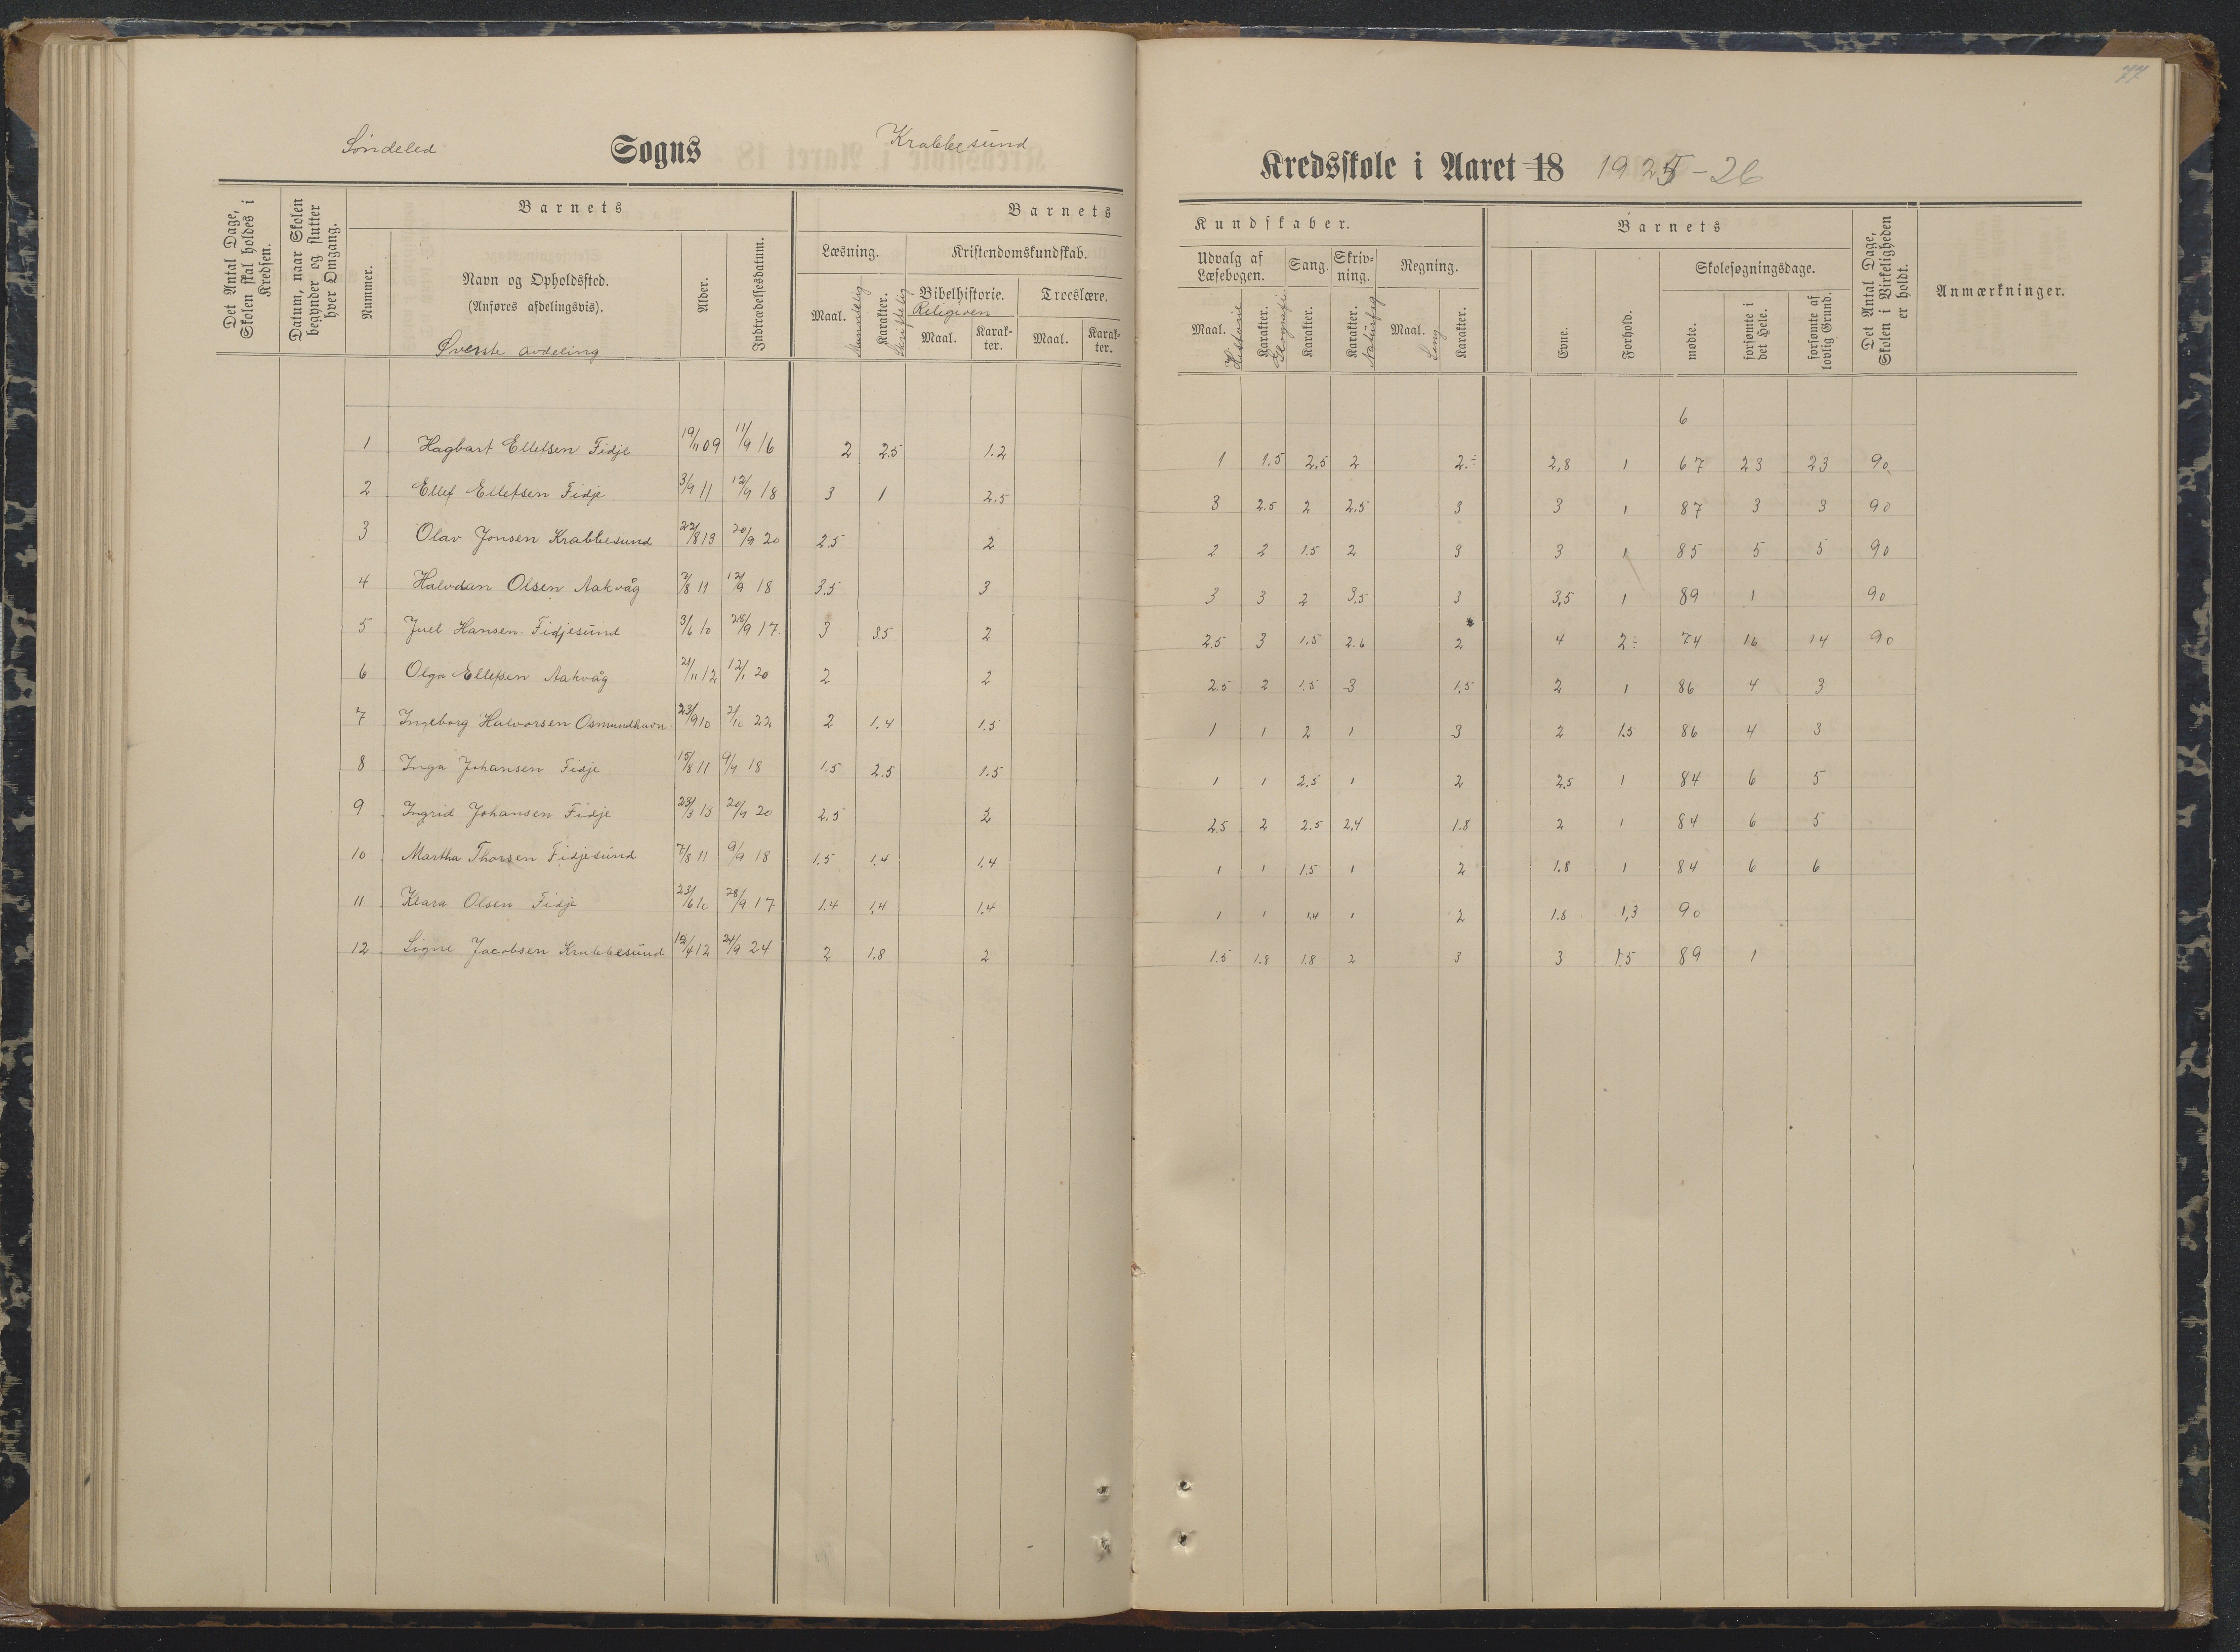 77
Søndeled Sogns Krabbesund Kredsskole i Aaret 18 1925-26
Det Antal Dage, Skolen skal holdes i Kredsen.
Datum, naar Skolen begynder og slutter hver Omgang.
Barnets
Nummer.
Navn og Opholdssted.
(Anføres afdelingsvis).
Øverste avdeling
Alder.
Indtrædelsesdatum.
Barnets
Læsning.
Maal. Mundtlig
Karakter. Skriftlig
Kristendomskundskab.
Bibelhistorie. Troeslære.
Religion
Maal. Karakter. Maal. Karakter.
Kundskaber.
Udvalg af Læsebogen. Sang. Skrivning. Regning.
Maal. Historie Karakter. Geografi Karakter. Karakter. Naturfag Maal. Sang Karakter.
Barnets
Evne. Forhold.
Skolesøgningsdage.
mødte. forsømte i det Hele. forsømte af lovlig Grund.
Det Antal Dage, Skolen i Virkeligheden er holdt.
Anmærkninger.
6
1 Hagbart Ellefsen Fidje 19/11 09 11/9 16 2 2.5 1.2 1 1.5 2.5 2 2÷ 2,8 1 67 23 23 90
2 Ellef Ellefsen Fidje 3/9 11 12/9 18 3 1 2.5 3 2.5 2 2.5 3 3 1 87 3 3 90
3 Olav Jonsen Krabbesund 22/8 13 20/9 20 2.5 2 2 2 1.5 2 3 3 1 85 5 5 90
4 Halvdan Olsen Aakvåg 2/8 11 12/9 18 3.5 3 3 3 2 3,5 3 3,5 1 89 1 90
5 Juel Hansen Fidjesund 3/6 10 28/9 17 3 3.5 2 2.5 3 1,5 2.6 2 4 2÷ 74 16 14 90
6 Olga Ellefsen Aakvåg 21/11 12 12/1 20 2 2 2.5 2 1.5 3 1,5 2 1 86 4 3
7 Ingeborg Halvorsen Osmundhavn 23/9 10 2/10 22 2 1.4 1.5 1 1 2 1 3 2 1.5 86 4 3
8 Inga Johansen Fidje 15/8 11 9/9 18 1.5 2.5 1.5 1 1 2,5 1 2 2.5 1 84 6 5
9 Ingrid Johansen Fidje 23/3 13 20/9 20 2.5 2 2.5 2 2.5 2,4 1.8 2 1 84 6 5
10 Martha Thorsen Fidjesund 7/8 11 9/9 18 1.5 1.4 1.4 1 1 1.5 1 2 1.8 1 84 6 6
11 Klara Olsen Fidje 23/6 10 28/9 17 1.4 1,4 1.4 1 1 1.4 1 2 1.8 1,3 90
12 Signe Jacobsen Krabbesund 15/4 12 24/9 24 2 1.8 2 1.5 1.8 1.8 2 3 3 1.5 89 1